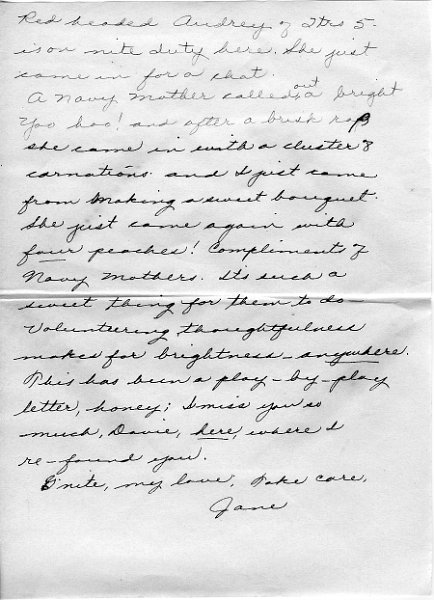 Red headed Audrey of Qtrs 5-
is on nite duty here. She just
came in for a chat.
A Navy Mother called out a bright
Yoo hoo! and after a brisk rap
she came in with a cluster of
carnations and I just came
from making a sweet bouquet.
She just came again with
four peaches! Compliments of
Navy Mothers. It's such a
sweet thing for them to do-
Volunteering thoughtfulness
makes for brightness - anywhere.
This has been a play-by-play
letter, honey; I miss you so
much, Davie, here, where I
re-found you.
G'nite, my love. Take care.
Jane